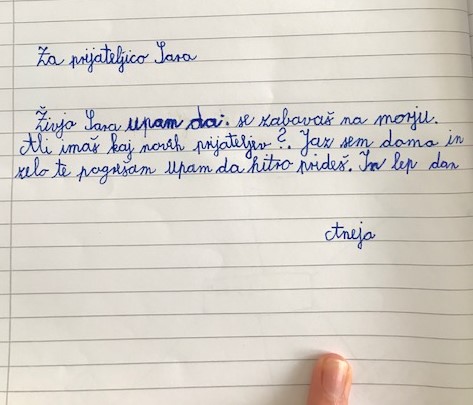 Za prijateljico Sara
Živjo Sara upam da. se zabavaš na morju.
Ali imaš kaj novih prijateljev?. Jaz sem doma in
zelo te pogrišam upam da hitro prideš. In lep dan
Aneja